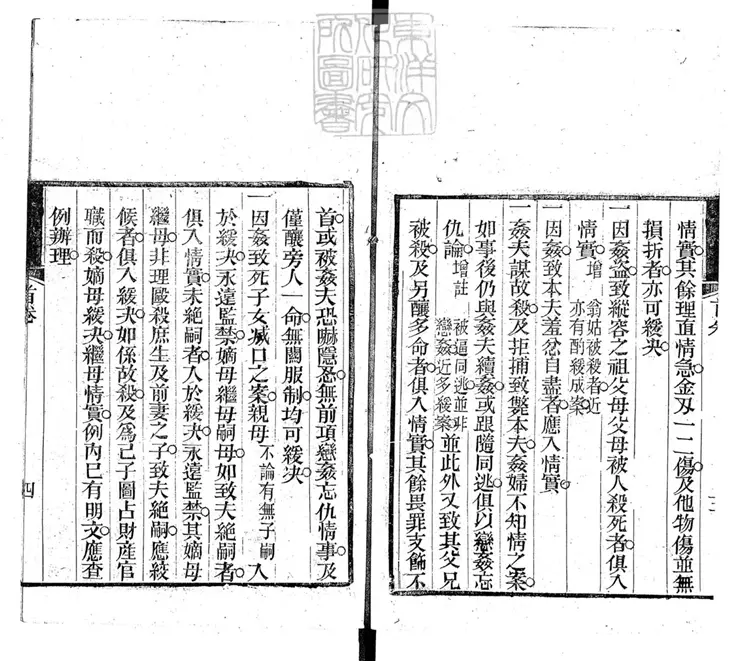 情實其餘理直情急金刃一二傷及他物傷並無
損折者亦可緩决
一因姦盜致縱容之祖父母父母被人殺死者俱入
情實增 翁姑被殺者近亦有酌緩成案
一因姦致本夫羞忿自盡者應入情實
一姦夫謀故殺及拒捕致斃本夫姦婦不知情之案
如事後仍與姦夫續姦或跟隨同逃俱以戀姦忘
仇論增註 被逼同逃並非戀姦近多緩案 並此外又致其父兄
被殺及另釀多命者俱入情實其餘畏罪支飾不
首或被姦夫恐嚇隱忍無前項戀姦忘仇情事及
僅釀旁人一命無關服制均可緩决
一因姦致死子女滅口之案親母不論有無子嗣入
於緩决永遠監禁嫡母繼母嗣母如致夫絕嗣者
俱入情實未絕嗣者入於緩决永遠監禁其嫡母
繼母非理毆殺庶生及前妻之子致夫絕嗣應絞
候者俱入緩决如係故殺及為己子圖占財產官
職而殺嫡母緩决繼母情實例內已有明文應查
例辦理
首卷
四
東洋文
化研究
所圖書